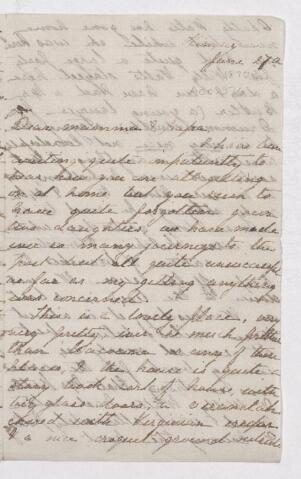 June 27th
Dear mamma & Papa
I have been
waiting quite impatiently to
hear how you are all getting
on at home but you seem to
have quite forgotten your
two daughters, we have made
ever so many journeys to the
post but all quite unsuccessful
as far as my getting anything
was concerned.
This is a lovely place, very
very pretty, ever so much prettier
than or any of those
places, & the house is quite a
story book sort of house, with
glass doors, a verandah
covered with Virginian creeper
& a nice croquet ground outside